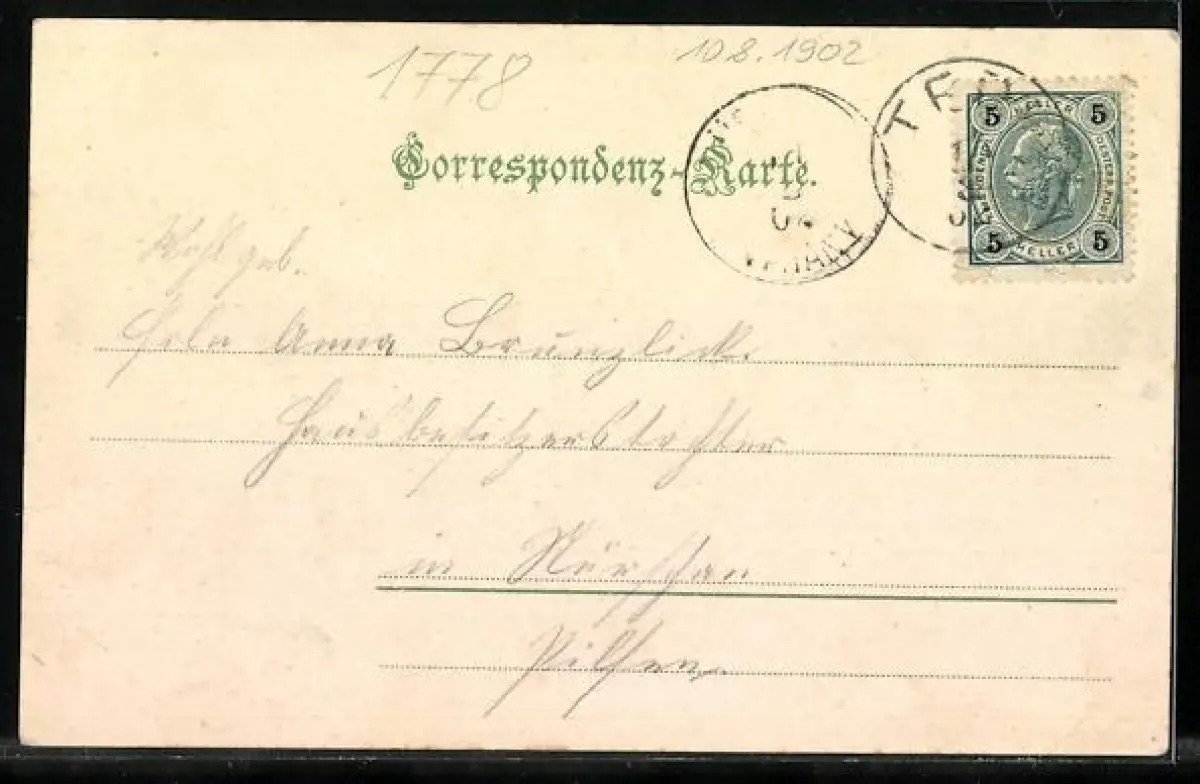 1778 10.8.1902
Correspondenz-Karte.
5 HELLER 5
5 HELLER 5
Wohlgeb.
Frln Anna
Hausbesitzerstochter
in Nürschan
Pilsen.